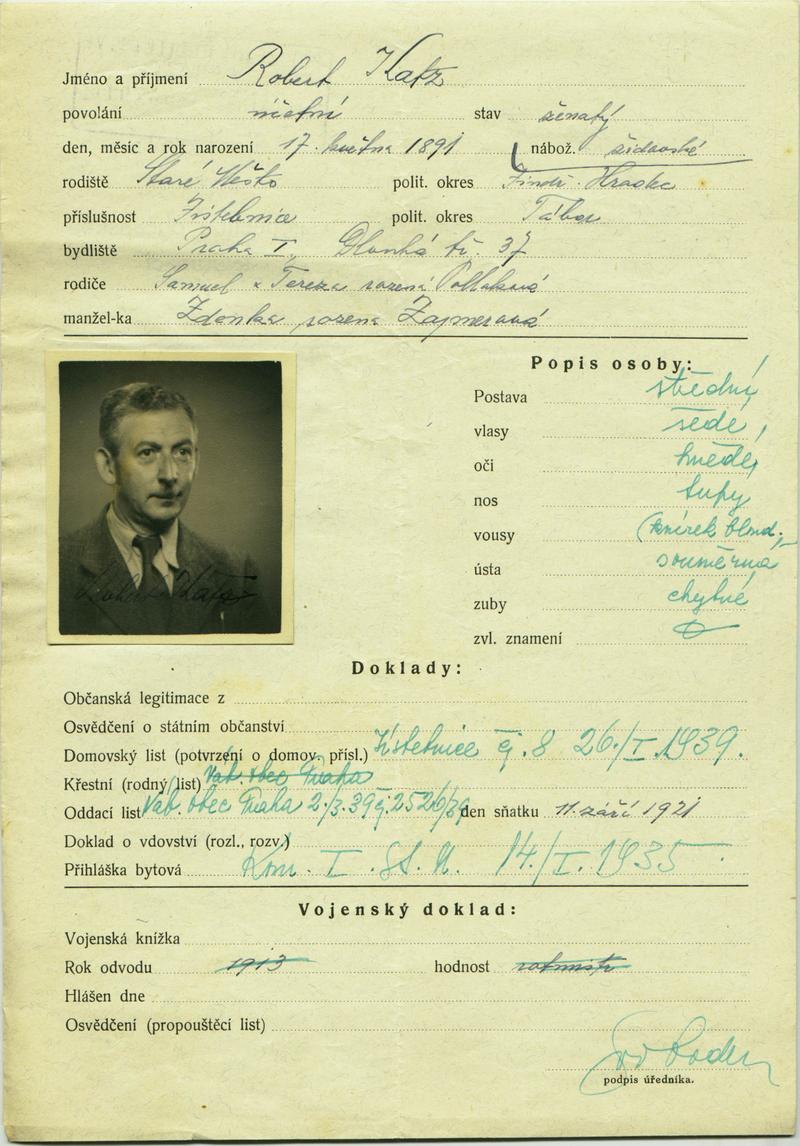 Jméno a příjmení Robert Katz
povolání účetní stav ženatý
den, měsíc a rok narození 17. května 1891 nábož. židovské
rodiště Staré Město polit. okres Jindř. Hradec
příslušnost Jistebnice polit. okres Tábor
bydliště Praha I., Dlouhá tř. 37
rodiče Samuel a Tereza rozená Pollaková
manžel-ka Zdenka rozená
Popis osoby:
Postava střední
vlasy šedé
oči hnědé
nos tupý
vousy (knírek blond.
ústa souměrná
zuby chybné
zvl. znamení
Robert Katz
Doklady:
Občanská legitimace z
Osvědčení o státním občanství
Domovský list (potvrzení o domov. přísl.) Jistebnice čj. 8 26./I.1939.
Křestní (rodný list) Náb. obec Praha
Oddací list Náb. obec Praha 2./3.39 den sňatku 11. září 1921
Doklad o vdovství (rozl., rozv.)
Přihláška bytová Kom. I. 14./I. 1935
Vojenský doklad:
Vojenská knížka
Rok odvodu 1913 hodnost rotmistr
Hlášen dne
Osvědčení (propouštěcí list)
podpis úředníka.